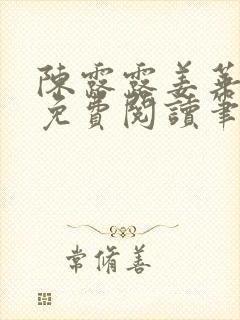 陳露露姜萊
免費閱讀筆
常脩善